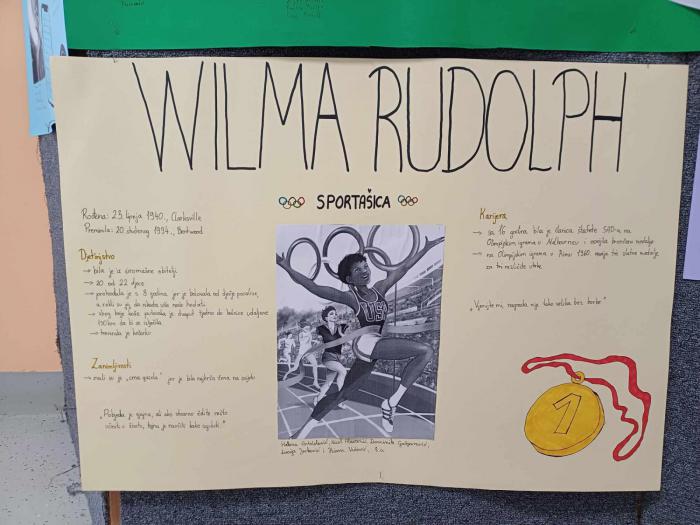 WILMA RUDOLPH
SPORTAŠICA
Rođena: 23. lipnja 1940., Clarksville
Preminula: 12. studenog 1994., Brentwood
Djetinjstvo
→ bila je iz siromašne obitelji
→ 20. od 22 djece
→ prohodala je s 8 godina jer je bolovala od dječje paralize,
a rekli su joj da nikada više neće hodati
→ zbog toga je putovala dvaput tjedno do bolnice udaljene
da bi se liječila
→ trenirala je košarku
Zanimljivosti
→ zvali su je „crna gazela" jer je bila najbrža žena na svijetu
„Pobjeda je sjajna, ali ako stvarno želite nešto
učiniti u životu, tajna je naučiti kako izgubiti."
USA
Karijera
→ sa 16 godina bila je članica štafete SAD-a na
Olimpijskim igrama u Melbourneu i osvojila brončanu medalju
→ na Olimpijskim igrama u Rimu 1960. osvaja tri zlatne medalje
za tri različite utrke
„Vjerujte mi, nagrada nije tako velika bez borbe"
1